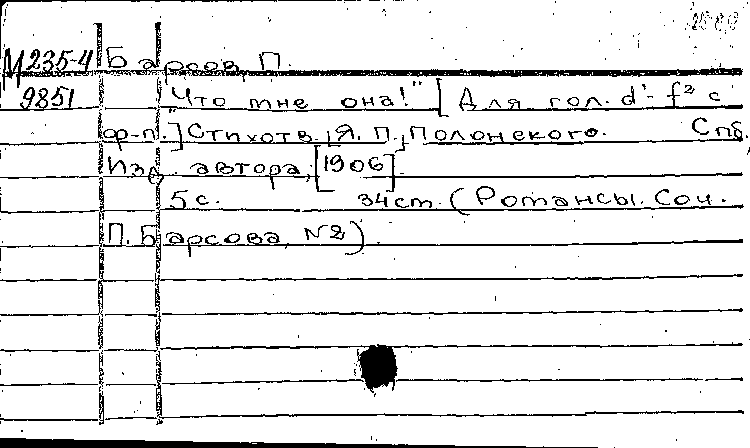 М235-4 Барсов, П.
9851 "Что мне она!" [Для гол. d¹-f² с
ф-п.] Стихотв. [Я. П.] Полонского. Спб,
Изд. автора, [1906].
5 с. 34 cm. (Романсы. Соч.
П. Барсова, №2).